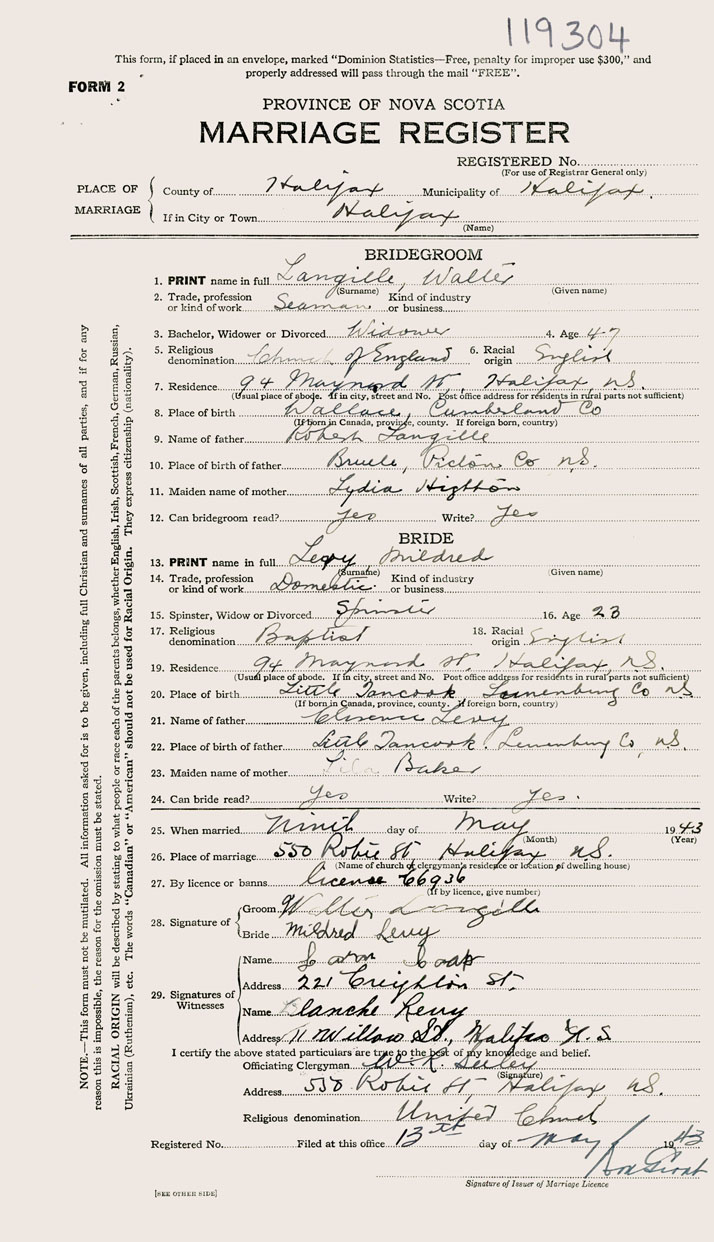 119304
This form, if placed in an envelope, marked "Dominion Statistics—Free, penalty for improper use $300," and
properly addressed will pass through the mail "FREE".
FORM 2
PROVINCE OF NOVA SCOTIA
MARRIAGE REGISTER
REGISTERED No.
(For use of Registrar General only)
PLACE OF MARRIAGE
County of Halifax Municipality of Halifax.
If in City or Town Halifax
(Name)
BRIDEGROOM
1. PRINT name in full Langille, Walter
(Surname) (Given name)
2. Trade, profession or kind of work Seaman Kind of industry or business
3. Bachelor, Widower or Divorced Widower 4. Age 47
5. Religious denomination Church of England 6. Racial origin English
7. Residence 94 Maynard St, Halifax, N.S.
(Usual place of abode. If in city, street and No. Post office address for residents in rural parts not sufficient)
8. Place of birth Wallace, Cumberland Co
(If born in Canada, province, county. If foreign born, country)
9. Name of father Robert Langille
10. Place of birth of father Pictou Co N.S.
11. Maiden name of mother Lydia
12. Can bridegroom read? Yes Write? Yes
BRIDE
13. PRINT name in full Levy, Mildred
(Surname) (Given name)
14. Trade, profession or kind of work Domestic. Kind of industry or business
15. Spinster, Widow or Divorced Spinster 16. Age 23
17. Religious denomination Baptist 18. Racial origin English
19. Residence 94 Maynard St. Halifax, N.S.
(Usual place of abode. If in city, street and No. Post office address for residents in rural parts not sufficient)
20. Place of birth Little Tancook, Lunenburg Co N.S
(If born in Canada, province, county. If foreign born, country)
21. Name of father Clarence Levy
22. Place of birth of father Little Tancook. Lunenburg Co, N.S.
23. Maiden name of mother Baker
24. Can bride read? Yes Write? Yes.
25. When married Ninth day of May 1943
(Month) (Year)
26. Place of marriage 550 Robie St, Halifax N.S.
(Name of church or clergyman's residence or location of dwelling house)
27. By licence or banns license 66936
(If by licence, give number)
28. Signature of Groom Walter Langille
Bride Mildred Levy
29. Signatures of Witnesses
Name
Address 221 Creighton St.
Name Blanche
Address 11 Willow St., Halifax N.S
I certify the above stated particulars are true to the best of my knowledge and belief.
Officiating Clergyman W. R. Seeley
(Signature)
Address 550 Robie St, Halifax N.S.
Religious denomination United Church
Registered No. Filed at this office 13th day of May 1943
Signature of Issuer of Marriage Licence
[SEE OTHER SIDE]
NOTE.—This form must not be mutilated. All information asked for is to be given, including full Christian and surnames of all parties, and if for any
reason this is impossible, the reason for the omission must be stated.
RACIAL ORIGIN will be described by stating to what people or race each of the parents belongs, whether English, Irish, Scottish, French, German, Russian,
Ukrainian (Ruthenian), etc. The words "Canadian" or "American" should not be used for Racial Origin. They express citizenship (nationality).